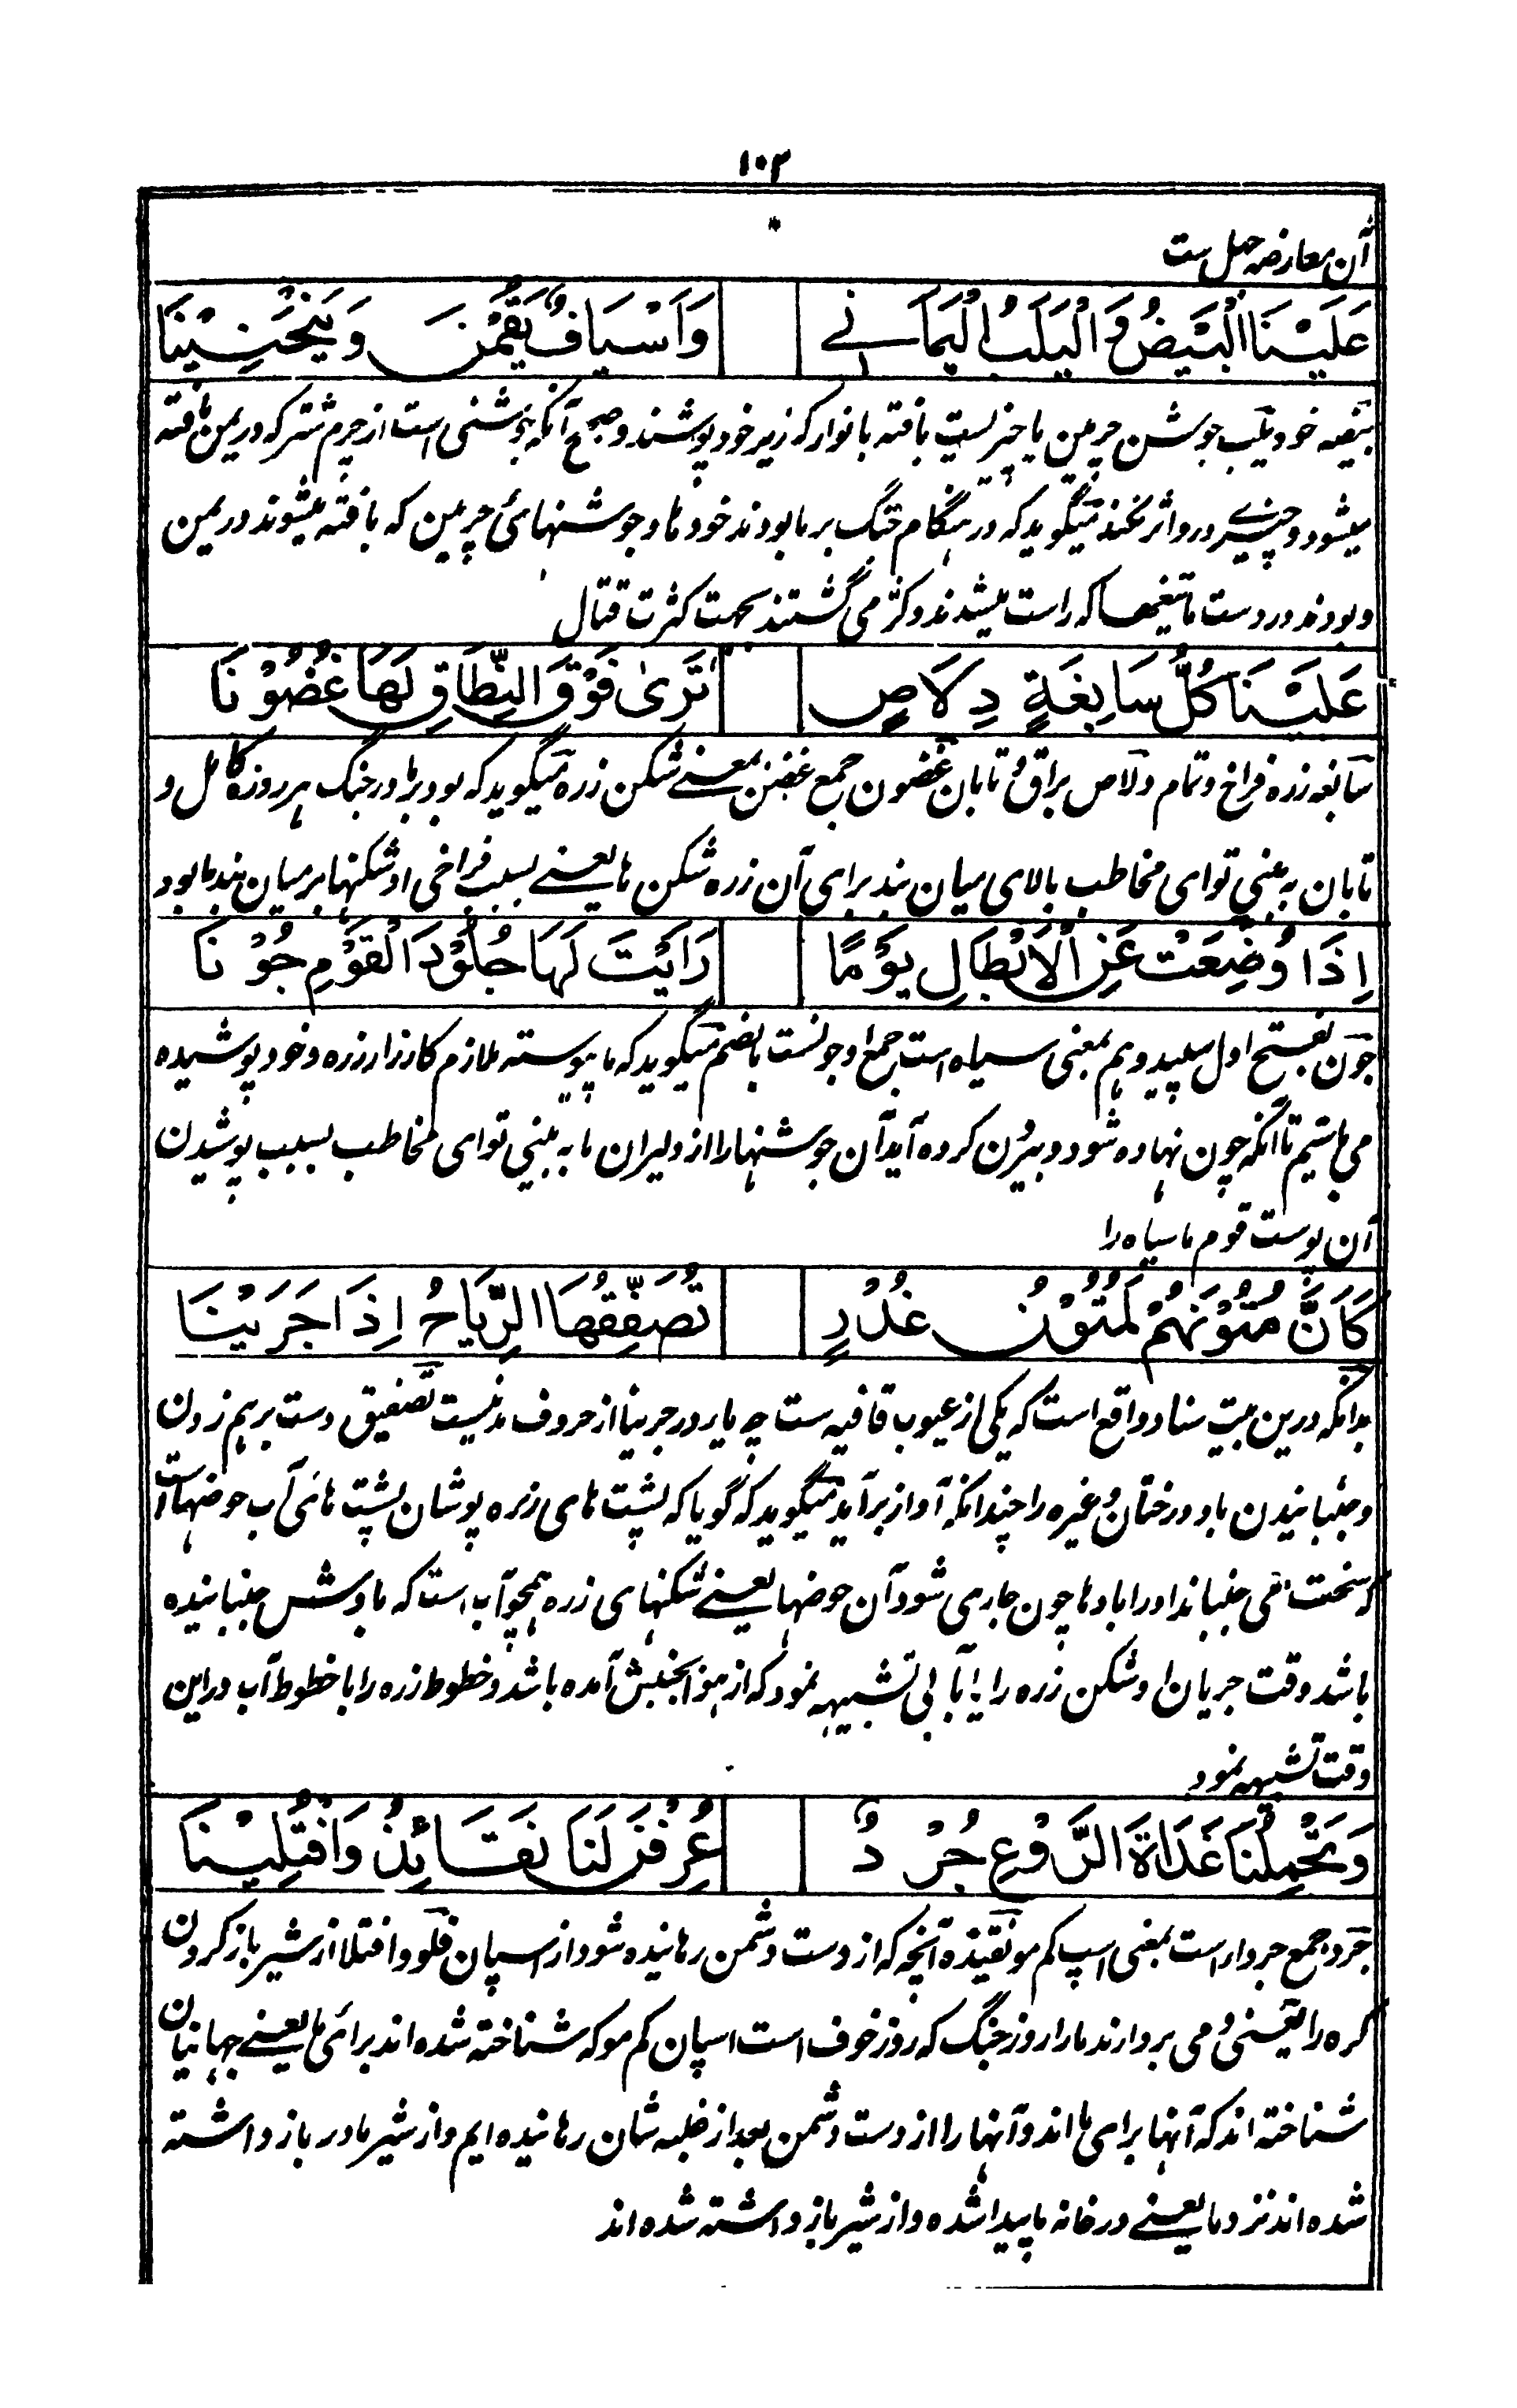 ۱۰۳
آن معارضه حمل ست
عَلَيْنَا الْبَيْضُ وَ الْيَلَبُ الْيَمَانِے وَاَسْيَافٌ يَقُمْنَ وَيَنْحَنِيْنَا
بیضه خود یلب جوشن چرمین یا چیزیست بافته بانوار که زیر خود پوشند و صحیح آنکه جوشنی است از چرم شتر که در یمن بافته
میشود و چیزے در و اثر نکند میگوید که در هنگام جنگ بر ما بودند خودها و جوشنهائی چرمین که بافته میشوند در یمن
و بودند در دست ما تیغها که راست میشدند و کژ می گشتند بجهت کثرت قتال
عَلَيْنَا كُلُّ سَابِغَةٍ دِلَاصٍ تَرىٰ فَوْقَ النِّطَاقِ لَهَا غُضُوْنَا
سابغه زره فراخ و تمام دلاص براق و تابان غضون جمع غضن بمعنے شکن زره میگوید که بود بر ما در جنگ هر روزه کامل و
تابان به بینی تو ای مخاطب بالای میان بند برای آن زره شکن ها یعنے بسبب فراخی او شکنها بر میان بند ما بود
اِذَا وُضِعَتْ عَنِ الْاَبْطَالِ يَوْمًا رَاَيْتَ لَهَا جُلُوْدَ الْقَوْمِ جُوْنَا
جون بفتح اول سپید و هم بمعنی سیاه است جمع او جونست بالضم میگوید که ما پیوسته ملازم کارزار زره و خود پوشیده
می باشیم تا آنکه چون نهاده شود و بیرون کرده آید آن جوشنها را از دلیران ما به بینی تو ای مخاطب بسبب پوشیدن
آن پوست قوم ما سیاه را
كَاَنَّ مُتُوْنَهُمْ لَمُتُوْنُ غُدُرٍ تُصَفِّقُهَا الرِّيَاحُ اِذَا جَرَيْنَا
بدانکه درین بیت سناد واقع است که یکی از عیوب قافیه ست چه یا در جرینا از حروف مد نیست تصفیق دست بر هم زدن
و جنبانیدن باد درختان و غیره را چندانکه آواز بر آید میگوید که گویا که پشت های زره پوشان پشت هائی آب حوضهاست
که سخت می جنباند او را بادها چون جاری شود آن حوضها یعنے شکنهای زره همچو آب است که بادش جنبانیده
باشد وقت جریان او شکن زره را با آبی تشبیه نمود که از هوا بجنبش آمده باشد و خطوط زره را با خطوط آب در این
وقت تشبیه نمود
وَتَحْمِلُنَا غَدَاةَ الرَّوْعِ جُرْدٌ عُرِفْنَ لَنَا نَقَائِذُ وَافْتُلِيْنَا
جرد جمع جرداء است بمعنی اسپ کم مو نقیذه آنچه که از دست دشمن رهانیده شود از اسپان فلو و افتلا از شیر باز کردن
کره را یعنی و می بردارند ما را روز جنگ که روز خوف است اسپان کم مو که شناخته شده اند برای ما یعنے جهانیان
شناخته اند که آنها برای ما اند و آنها را از دست دشمن بعد از غلبه شان رهانیده ایم و از شیر مادر باز داشته
شده اند نزد ما یعنے در خانه ما پیدا شده و از شیر باز داشته شده اند